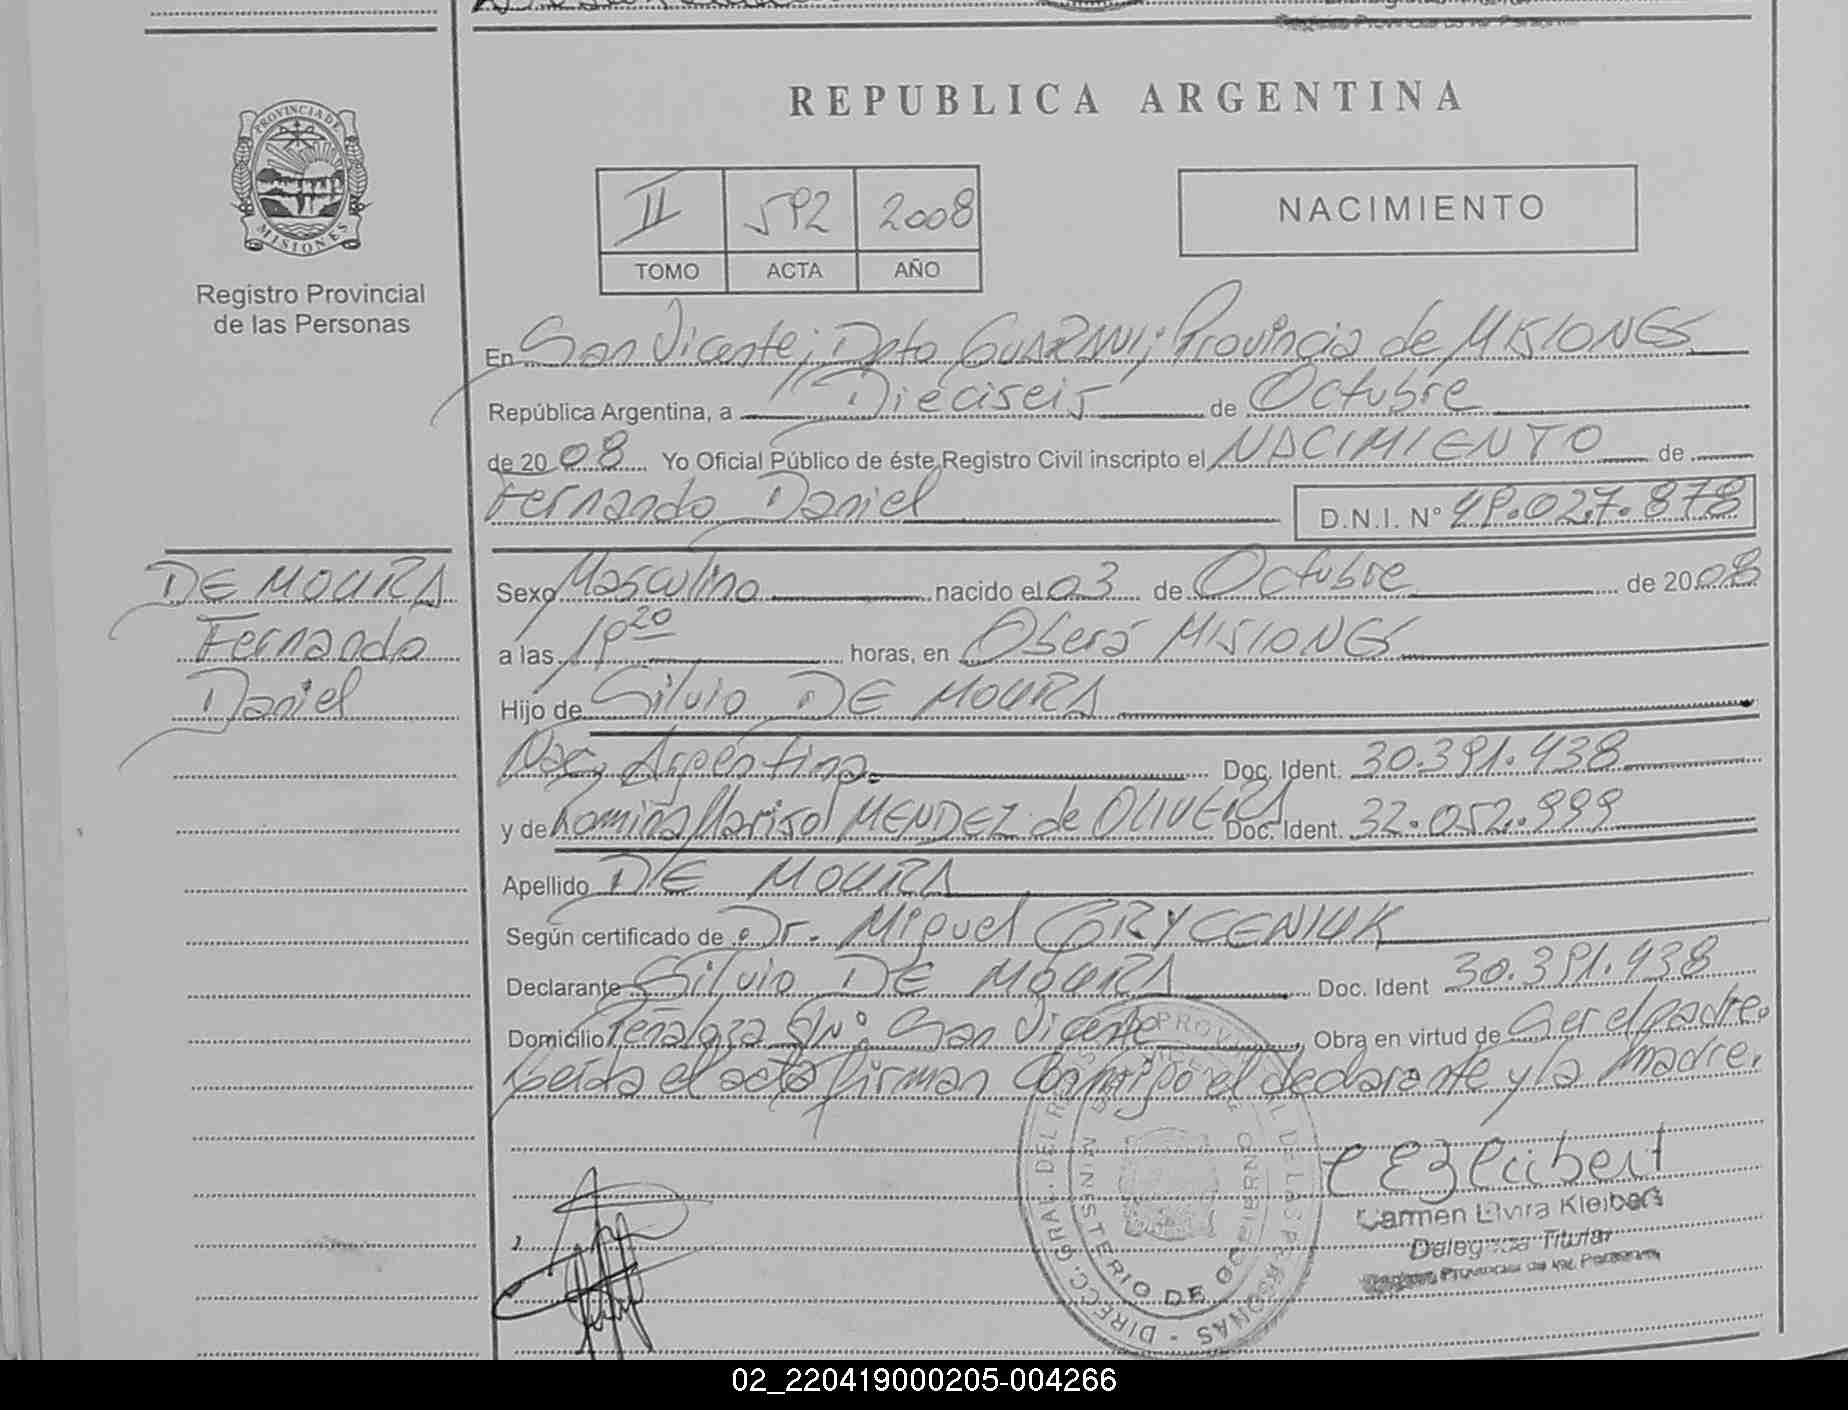 REPUBLICA ARGENTINA
PROVINCIA DE
MISIONES
Registro Provincial
de las Personas
II 592 2008
TOMO ACTA AÑO
NACIMIENTO
En San Vicente; Dpto GUARANI; Provincia de MISIONES
República Argentina, a Dieciseis de Octubre
de 2008 Yo Oficial Público de éste Registro Civil inscripto el NACIMIENTO de
Fernando Daniel D.N.I. Nº 49.027.878
DE MOURA
Fernando
Daniel
Sexo Masculino nacido el 03 de Octubre de 2008
a las 19 20 horas, en Oberá MISIONES
Hijo de Silvio DE MOURA
Nac. Argentina. Doc. Ident. 30.391.438
y de Romina Marisol MENDEZ de OLIVEIRA Doc. Ident. 32.052.999
Apellido DE MOURA
Según certificado de Dr. Miguel GRYCENIUK
Declarante Silvio DE MOURA Doc. Ident 30.391.438
Domicilio Peñaloza S/Nº San Vicente, Obra en virtud de Ser el padre.
Leída el acta firman conmigo el declarante y la madre.
Carmen Elvira Kleibert
Delegada Titular
Registro Provincial de las Personas
DIRECC. GRAL. DEL REG. PROVINCIAL DE LAS PERSONAS
MINISTERIO DE GOBIERNO
02_220419000205-004266